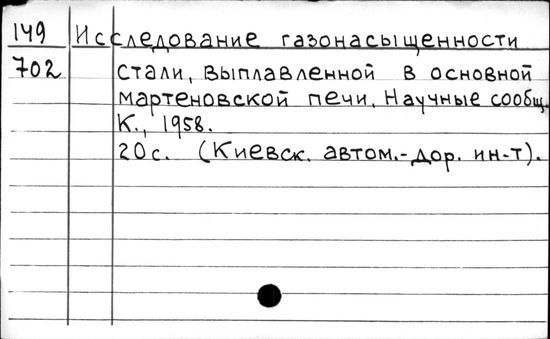 149 Исследование газонасыщенности
702 стали, выплавленной в основной
мартеновской печи. Научные сообщ.
К., 1958.
20с. (Киевск. автом.-дор. ин-т).